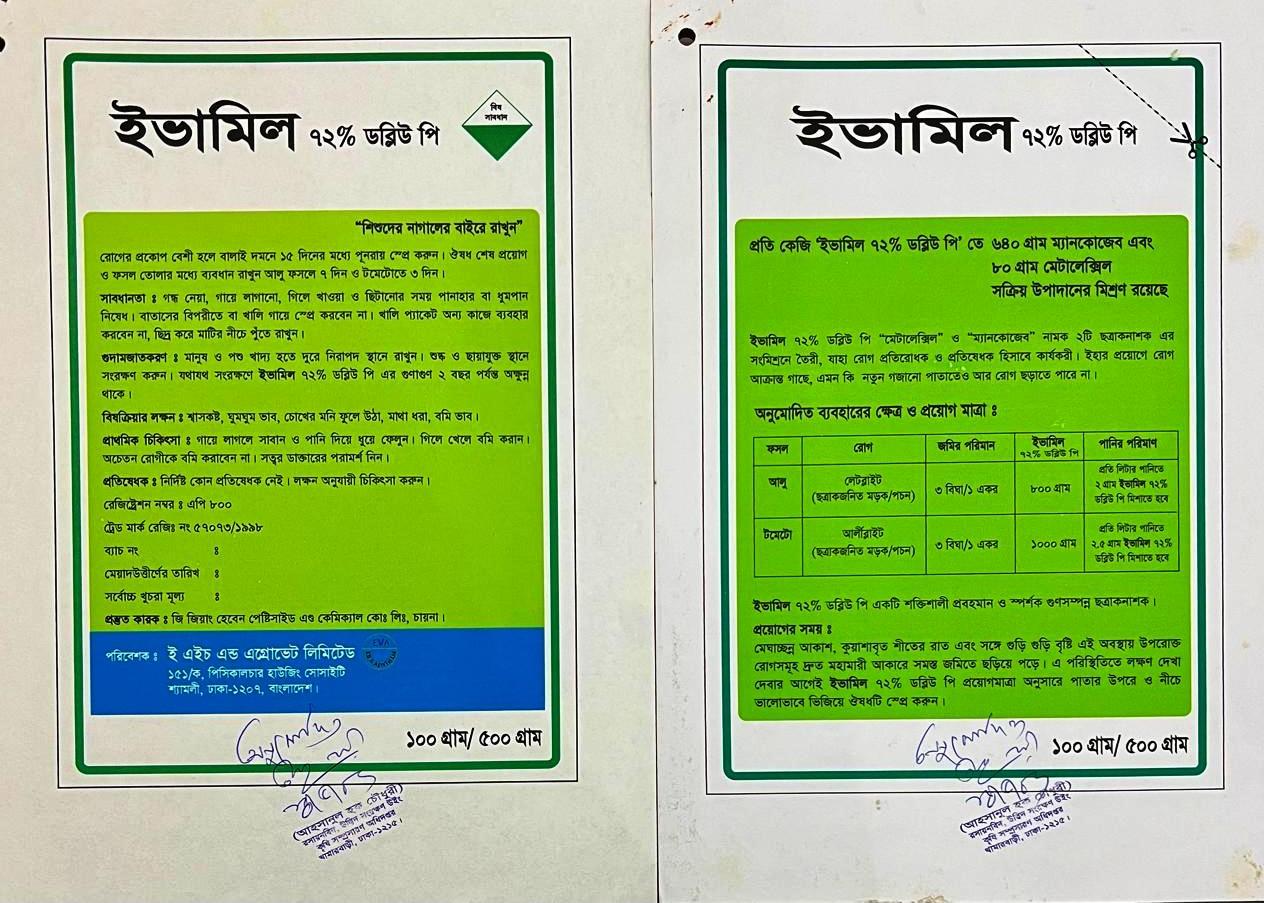 ইভামিল ৭২% ডব্লিউ পি
বিষ
সাবধান
“শিশুদের নাগালের বাইরে রাখুন”
রোগের প্রকোপ বেশী হলে বালাই দমনে ১৫ দিনের মধ্যে পূনরায় স্প্রে করুন। ঔষধ শেষ প্রয়োগ
ও ফসল তোলার মধ্যে ব্যবধান রাখুন আলু ফসলে ৭ দিন ও টমেটোতে ৩ দিন।
সাবধানতা ঃ গন্ধ নেয়া, গায়ে লাগানো, গিলে খাওয়া ও ছিটানোর সময় পানাহার বা ধুমপান
নিষেধ। বাতাসের বিপরীতে বা খালি গায়ে স্প্রে করবেন না। খালি প্যাকেট অন্য কাজে ব্যবহার
করবেন না, ছিদ্র করে মাটির নীচে পুঁতে রাখুন।
গুদামজাতকরণ ঃ মানুষ ও পশু খাদ্য হতে দুরে নিরাপদ স্থানে রাখুন। শুষ্ক ও ছায়াযুক্ত স্থানে
সংরক্ষণ করুন। যথাযথ সংরক্ষণে ইভামিল ৭২% ডব্লিউ পি এর গুণাগুণ ২ বছর পর্যন্ত অক্ষুন্ন
থাকে।
বিষক্রিয়ার লক্ষন ঃ শ্বাসকষ্ট, ঘুমঘুম ভাব, চোখের মনি ফুলে উঠা, মাথা ধরা, বমি ভাব।
প্রাথমিক চিকিৎসা ঃ গায়ে লাগলে সাবান ও পানি দিয়ে ধুয়ে ফেলুন। গিলে খেলে বমি করান।
অচেতন রোগীকে বমি করাবেন না। সত্বর ডাক্তারের পরামর্শ নিন।
প্রতিষেধক ঃ নির্দিষ্ট কোন প্রতিষেধক নেই। লক্ষন অনুযায়ী চিকিৎসা করুন।
রেজিষ্ট্রেশন নম্বর ঃ এপি ৮০০
ট্রেড মার্ক রেজিঃ নং ৫৭০৭৩/১৯৯৮
ব্যাচ নং ঃ
মেয়াদউত্তীর্ণের তারিখ ঃ
সর্বোচ্চ খুচরা মূল্য ঃ
প্রস্তুত কারক ঃ জি জিয়াং হেবেন পেষ্টিসাইড এণ্ড কেমিক্যাল কোঃ লিঃ, চায়না।
পরিবেশক ঃ ই এইচ এন্ড এগ্রোভেট লিমিটেড
EVA
১৫১/ক, পিসিকালচার হাউজিং সোসাইটি
শ্যামলী, ঢাকা-১২০৭, বাংলাদেশ।
১০০ গ্রাম/ ৫০০ গ্রাম
(আহসানুল হক চৌধুরী)
রসায়নবিদ, উদ্ভিদ সংরক্ষণ উইং
কৃষি সম্প্রসারণ অধিদপ্তর
খামারবাড়ী, ঢাকা-১২১৫।
ইভামিল ৭২% ডব্লিউ পি
প্রতি কেজি ‘ইভামিল ৭২% ডব্লিউ পি’ তে ৬৪০ গ্রাম ম্যানকোজেব এবং
৮০ গ্রাম মেটালেক্সিল
সক্রিয় উপাদানের মিশ্রণ রয়েছে
ইভামিল ৭২% ডব্লিউ পি “মেটালেক্সিল” ও “ম্যানকোজেব” নামক ২টি ছত্রাকনাশক এর
সংমিশ্রনে তৈরী, যাহা রোগ প্রতিরোধক ও প্রতিষেধক হিসাবে কার্যকরী। ইহার প্রয়োগে রোগ
আক্রান্ত গাছে, এমন কি নতুন গজানো পাতাতেও আর রোগ ছড়াতে পারে না।
অনুমোদিত ব্যবহারের ক্ষেত্র ও প্রয়োগ মাত্রা ঃ
ফসল রোগ জমির পরিমান ইভামিল ৭২% ডব্লিউ পি পানির পরিমাণ
আলু লেটব্লাইট (ছত্রাকজনিত মড়ক/পচন) ৩ বিঘা/১ একর ৮০০ গ্রাম প্রতি লিটার পানিতে ২ গ্রাম ইভামিল ৭২% ডব্লিউ পি মিশাতে হবে
টমেটো আর্লীব্লাইট (ছত্রাকজনিত মড়ক/পচন) ৩ বিঘা/১ একর ১০০০ গ্রাম প্রতি লিটার পানিতে ২.৫ গ্রাম ইভামিল ৭২% ডব্লিউ পি মিশাতে হবে
ইভামিল ৭২% ডব্লিউ পি একটি শক্তিশালী প্রবহমান ও স্পর্শক গুণসম্পন্ন ছত্রাকনাশক।
প্রয়োগের সময় ঃ
মেঘাচ্ছন্ন আকাশ, কুয়াশাবৃত শীতের রাত এবং সঙ্গে গুড়ি গুড়ি বৃষ্টি এই অবস্থায় উপরোক্ত
রোগসমূহ দ্রুত মহামারী আকারে সমস্ত জমিতে ছড়িয়ে পড়ে। এ পরিস্থিতিতে লক্ষণ দেখা
দেবার আগেই ইভামিল ৭২% ডব্লিউ পি প্রয়োগমাত্রা অনুসারে পাতার উপরে ও নীচে
ভালোভাবে ভিজিয়ে ঔষধটি স্প্রে করুন।
১০০ গ্রাম/ ৫০০ গ্রাম
(আহসানুল হক চৌধুরী)
রসায়নবিদ, উদ্ভিদ সংরক্ষণ উইং
কৃষি সম্প্রসারণ অধিদপ্তর
খামারবাড়ী, ঢাকা-১২১৫।